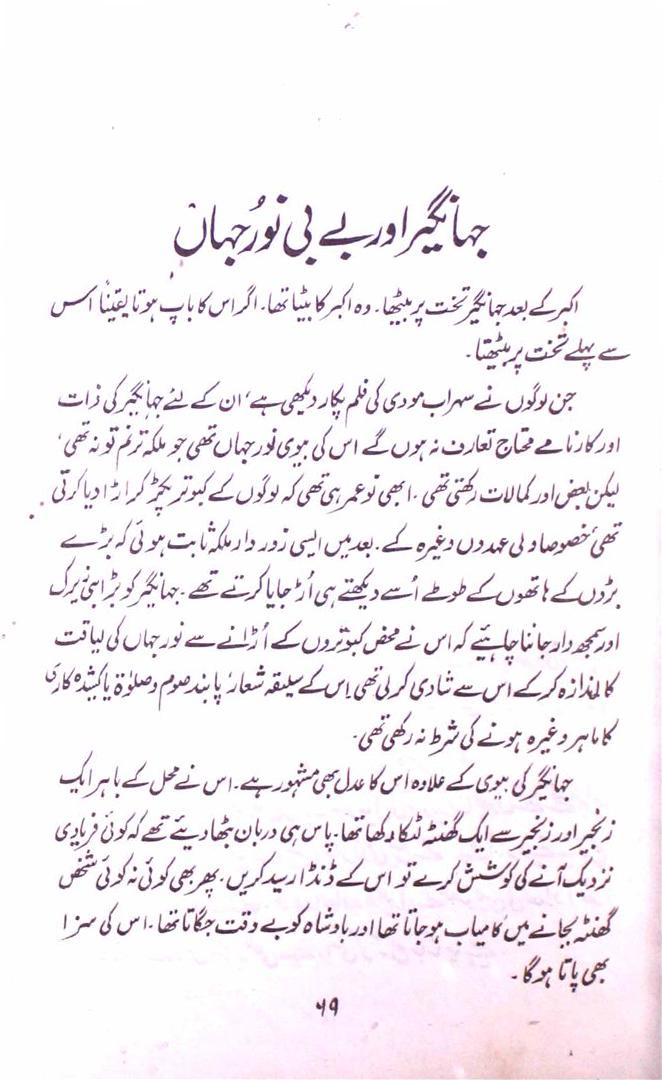 جہانگیر اور بے بی نورُ جہاں
اکبر کے بعد جہانگیر تخت پر بیٹھا۔ وہ اکبر کا بیٹا تھا۔ اگر اس کا باپ ہوتا یقیناً اس
سے پہلے تخت پر بیٹھتا۔
جن لوگوں نے سہراب مودی کی فلم پکار دیکھی ہے، ان کے لئے جہانگیر کی ذات
اور کارنامے محتاج تعارف نہ ہوں گے اس کی بیوی نور جہاں تھی جو ملکہ ترنم تو نہ تھی،
لیکن بعض اور کمالات رکھتی تھی۔ ابھی نوعمر ہی تھی کہ لوگوں کے کبوتر پکڑ کر اڑا دیا کرتی
تھی، خصوصا ولی عہدوں وغیرہ کے۔ بعد میں ایسی زور دار ملکہ ثابت ہوئی کہ بڑے
بڑوں کے ہاتھوں کے طوطے اُسے دیکھتے ہی اُڑ جایا کرتے تھے۔ جہانگیر کو بڑا ہی زیرک
اور سمجھ دار جاننا چاہئیے کہ اس نے محض کبوتروں کے اُڑانے سے نور جہاں کی لیاقت
کا اندازہ کر کے اس سے شادی کر لی تھی اس کے سلیقہ شعار، پابند صوم و صلوٰۃ یا کشیدہ کاری
کا ماہر وغیرہ ہونے کی شرط نہ رکھی تھی۔
جہانگیر کی بیوی کے علاوہ اس کا عدل بھی مشہور ہے۔ اس نے محل کے باہر ایک
زنجیر اور زنجیر سے ایک گھنٹہ لٹکا رکھا تھا۔ پاس ہی دربان بٹھا دیئے تھے کہ کوئی فریادی
نزدیک آنے کی کوشش کرے تو اس کے ڈنڈا رسید کریں۔ پھر بھی کوئی نہ کوئی شخص
گھنٹہ بجانے میں کامیاب ہو جاتا تھا اور بادشاہ کو بے وقت جگاتا تھا۔ اس کی سزا
بھی پاتا ہو گا۔
۶۹